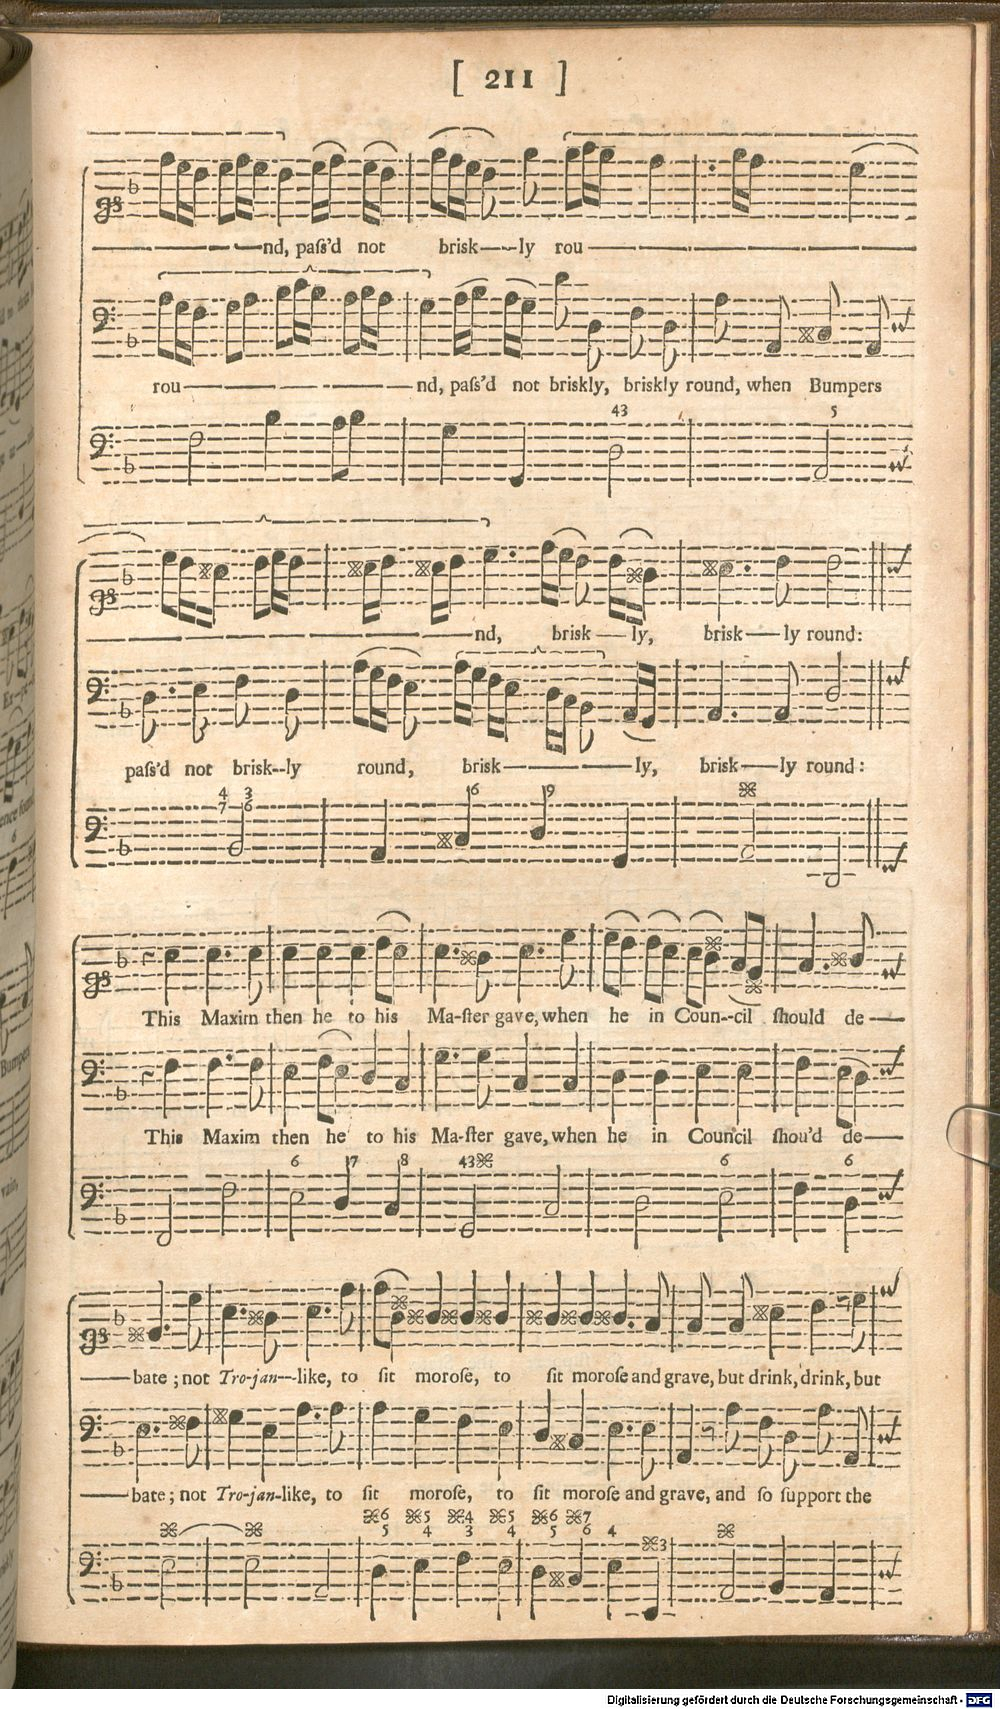 [ 211 ]
nd, paſs'd not brisk—ly rou
rou nd, paſs'd not briskly, briskly round, when Bumpers
43 5
nd, brisk — ly, brisk—ly round:
paſs'd not brisk--ly round, brisk ly, brisk—ly round:
4 3
7 6 6 9
This Maxim then he to his Ma-ſter gave, when he in Coun--cil ſhould de —
This Maxim then he to his Ma-ſter gave, when he in Council ſhou'd de—
6 7 8 43 6 6
—bate; not Tro-jan--like, to ſit moroſe, to ſit moroſe and grave, but drink, drink, but
—bate; not Tro-jan-like, to ſit moroſe, to ſit moroſe and grave, and ſo ſupport the
6 5 4 5 6 7
5 4 3 4 5 6 4 3
Digitalisierung gefördert durch die Deutsche Forschungsgemeinschaft - DFG